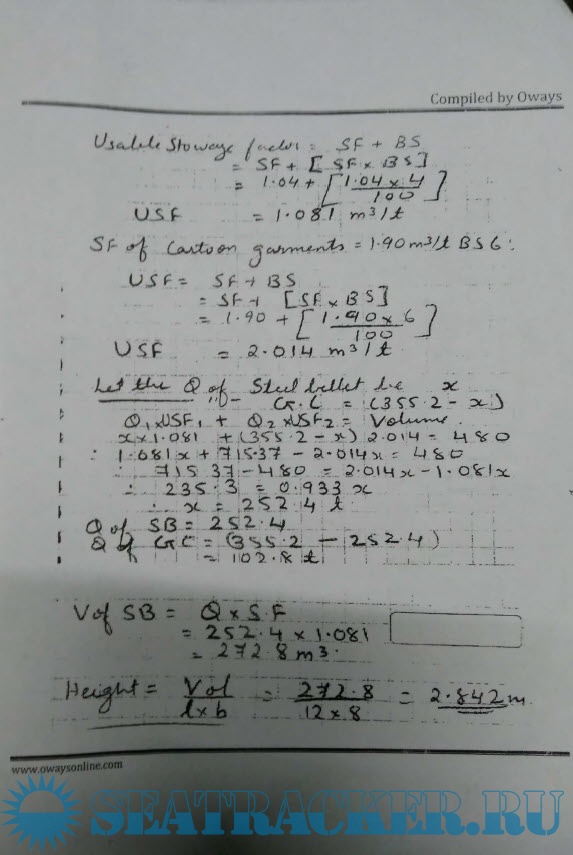 Compiled by Oways
Usable Stowage factor = SF + BS
= SF + [SF x BS]
= 1.04 + [1.04 x 4 / 100]
USF = 1.081 m³/t
SF of Cartoon garments = 1.90 m³/t BS 6:
USF = SF + BS
= SF + [SF x BS]
= 1.90 + [1.90 x 6 / 100]
USF = 2.014 m³/t
Let the Q of Steel billet be x
" " G.C = (355.2 - x)
Q₁xUSF₁ + Q₂xUSF₂ = Volume.
x x 1.081 + (355.2 - x) 2.014 = 480
∴ 1.081x + 715.37 - 2.014x = 480
∴ 715.37 - 480 = 2.014x - 1.081x
∴ 235.3 = 0.933 x
∴ x = 252.4 t.
Q of SB = 252.4
Q of GC = (355.2 - 252.4)
= 102.8 t
V of SB = Q x S.F
= 252.4 x 1.081
= 272.8 m³.
Height = Vol / l x b = 272.8 / 12 x 8 = 2.842 m
www.owaysonline.com
SEATRACKER.RU